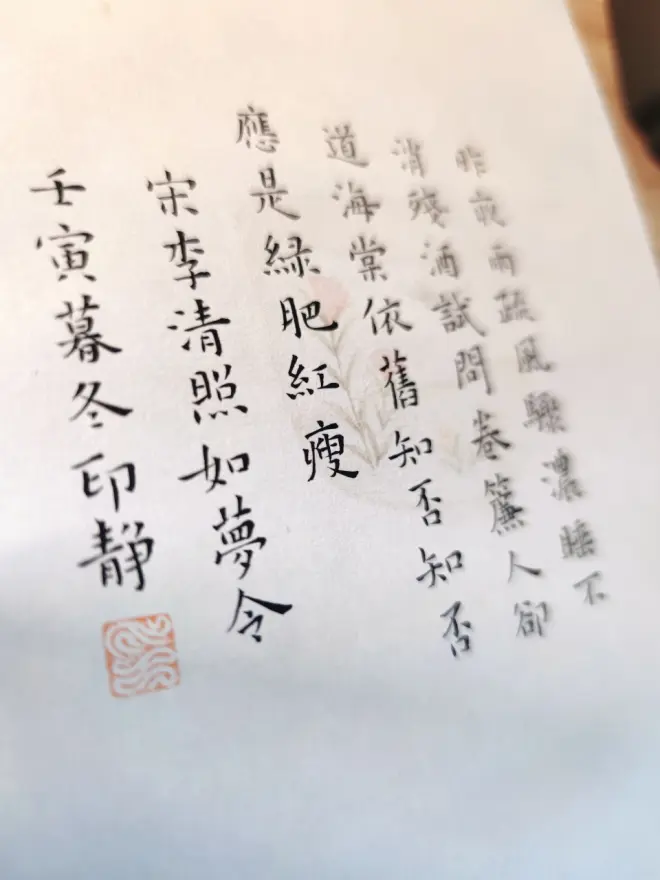 昨夜雨疏風驟濃睡不
消殘酒試問卷簾人卻
道海棠依舊知否知否
應是綠肥紅瘦
宋李清照如夢令
壬寅暮冬印靜